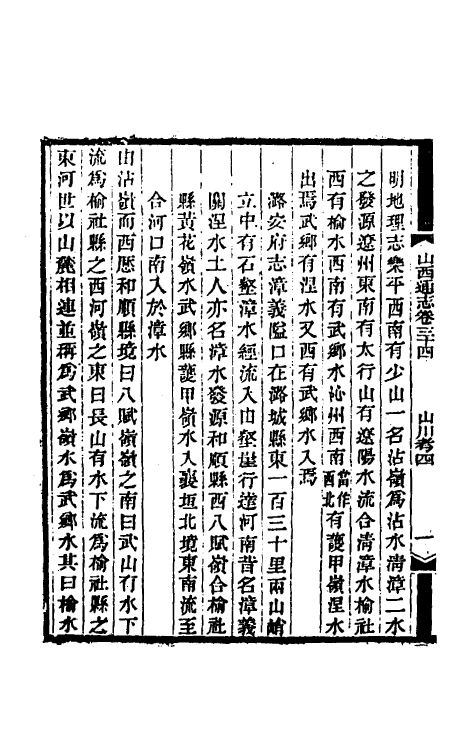 山西通志卷三十四　山川考四　一
明地理志樂平西南有少山一名沾嶺爲沾水清漳二水
之發源遼州東南有太行山有遼陽水流合清漳水榆社
西有榆水西南有武鄉水沁州西南當作西北有護甲嶺涅水
出焉武鄉有涅水又西有武鄉水入焉
潞安府志漳義隘口在潞城縣東一百三十里兩山峭
立中有石壑漳水經流入山壑崖行達河南昔名漳義
關涅水土人亦名漳水發源和順縣西八賦嶺合榆社
縣黃花嶺水武鄉縣護甲嶺水入襄垣北境東南流至
合河口南入於漳水
由沾嶺而西歷和順縣境曰八賦嶺嶺之南曰武山有水下
流爲榆社縣之西河嶺之東曰長山有水下流爲榆社縣之
東河世以山麓相連並稱爲武鄉嶺水爲武鄉水其曰榆水